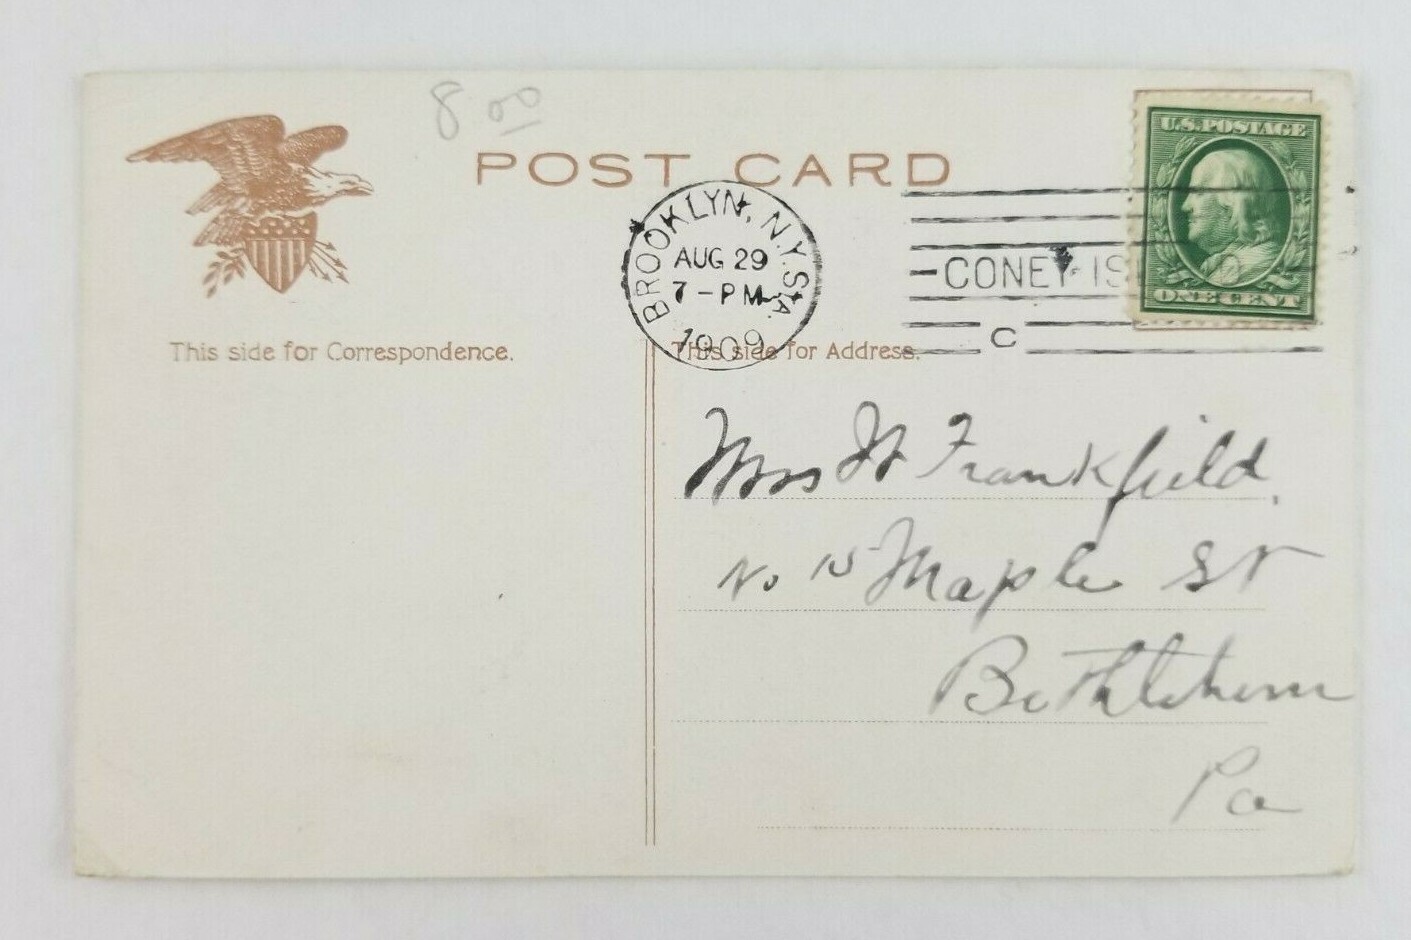 8 00
POST CARD
U.S. POSTAGE
ONE CENT
BROOKLYN, N.Y. STA.
AUG 29
7 - PM
1909
CONEY IS
C
This side for Correspondence.
This side for Address.
Mrs H Frankfield.
No 15 Maple St
Bethlehem
Pa